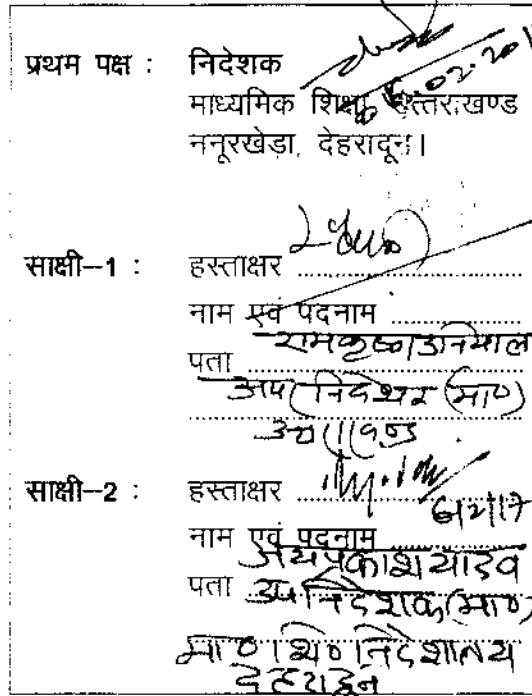 प्रथम पक्ष : निदेशक
माध्यमिक शिक्षा, उत्तराखण्ड
ननूरखेड़ा, देहरादून।
साक्षी–1 : हस्ताक्षर
नाम एवं पदनाम
रामकृष्ण उनियाल
पता
उप निदेशक (मा०)
उत्तराखण्ड
साक्षी–2 : हस्ताक्षर
6/2/17
नाम एवं पदनाम
जयप्रकाश यादव
पता उप निदेशक (मा०)
मा० शि० निदेशालय
देहरादून